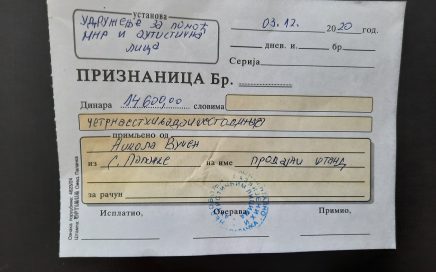 установа
Удружење за помоћ
МНР и аутистична
лица
03.12. 2020 год.
дневн. и. бр.
Серија
ПРИЗНАНИЦА Бр.
Динара 14600,00 словима
примљено од
Никола Вучен
из С. Паланке на име продајни штанд
за рачун
Исплатио, Оверава, Примио,